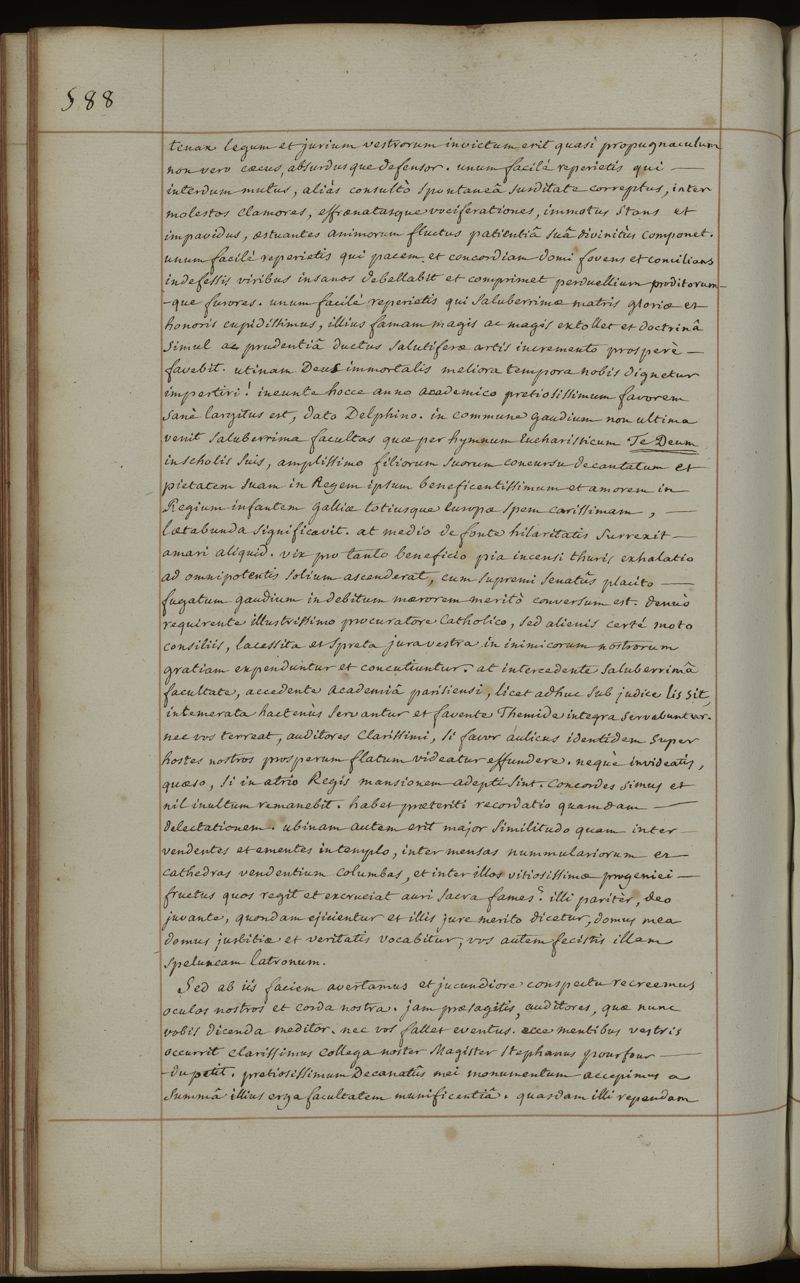 588
tenax legum et jurium vestrorum invictum erit quasi propugnaculum
non vero cæcus, absurdusque defensor. unum facilè reperietis qui —
interdum mutus, aliàs consultò spontaneâ surditate correptus, inter
molestos clamores, effrænatasque vociferationes, immotus stans et
impavidus, æstuantes animorum fluctus patientiâ suâ divinitùs componet.
unum facilè reperietis qui pacem et concordiam domi fovens et concilians
indefessis viribus insanos debellabit et comprimet perduellium proditorum-
-que furores. unum facilè reperietis qui saluberrimæ matris gloriæ et
honoris cupidissimus, illius famam magis ac magis extollet et doctrinâ
simul ac prudentiâ ductus salutiferæ artis incremento prosperè —
favebit. utinam Deus immortalis meliora tempora nobis dignetur
impertiri! ineunte hocce anno academico pretiosissimum favorem
sanè largitus est, dato Delphino. in commune gaudium non ultima
venit saluberrima facultas quæ per hymnum Eucharisticum Te Deum
in scholis suis, amplissimo filiorum suorum concursu decantatum et
pietatem suam in Regem ipsum beneficentissimum et amorem in
Regium infantem galliæ totiusque Europæ spem carissimam, —
lætabunda significavit. at medio de fonte hilaritatis surrexit —
amari aliquid. vix pro tanto beneficio pia incensi thuris exhalatio
ad omnipotentis solium ascenderat, cum supremi senatûs placito —
fugatum gaudium in debitum mærorem meritò conversum est. denuò
requirente illustrissimo procuratore Catholico, sed alienis certè moto
consiliis, lacessita et spreta jura vestra in inimicorum nostrorum
gratiam expenduntur et concutiuntur. at intercedente saluberrimâ
facultate, accedente academiâ parisiensi, licet adhuc sub judice lis sit,
intemerata hactenùs servantur et favente Themide integra servabuntur.
nec vos terreat, auditores clarissimi, si favor aulicus identidem super
hostes nostros prosperum flatum videatur effundere. neque invideatis,
quæso, si in atrio Regis mansionem adepti sint. Concordes simus et
nil inultum remanebit. habet præteriti recordatio quamdam —
delectationem. ubinam autem erit major similitudo quam inter
vendentes et ementes in templo, inter mensas nummulariorum et
cathedras vendentium columbas, et inter illos vitiosissimæ progeniei —
fructus quos regit et excruciat auri sacra fames? illi pariter, deo
juvante, quondam ejicientur et illis jure merito dicetur, domus mea
domus justitiæ et veritatis vocabitur, vos autem fecistis illam
speluncam latronum.
Sed ab iis faciem avertamus et jucundiore conspectu recreemus
oculos nostros et corda nostra. jam præsagitis, auditores, quæ nunc
vobis dicenda meditor. nec vos fallet eventus. ecce mentibus vestris
occurrit clarissimus collega noster Magister Stephanus pourfour —
-du petit. pretiosissimum Decanatûs mei monumentum accepimus a
summâ illius erga facultatem munificentiâ. quasdam illi rependam